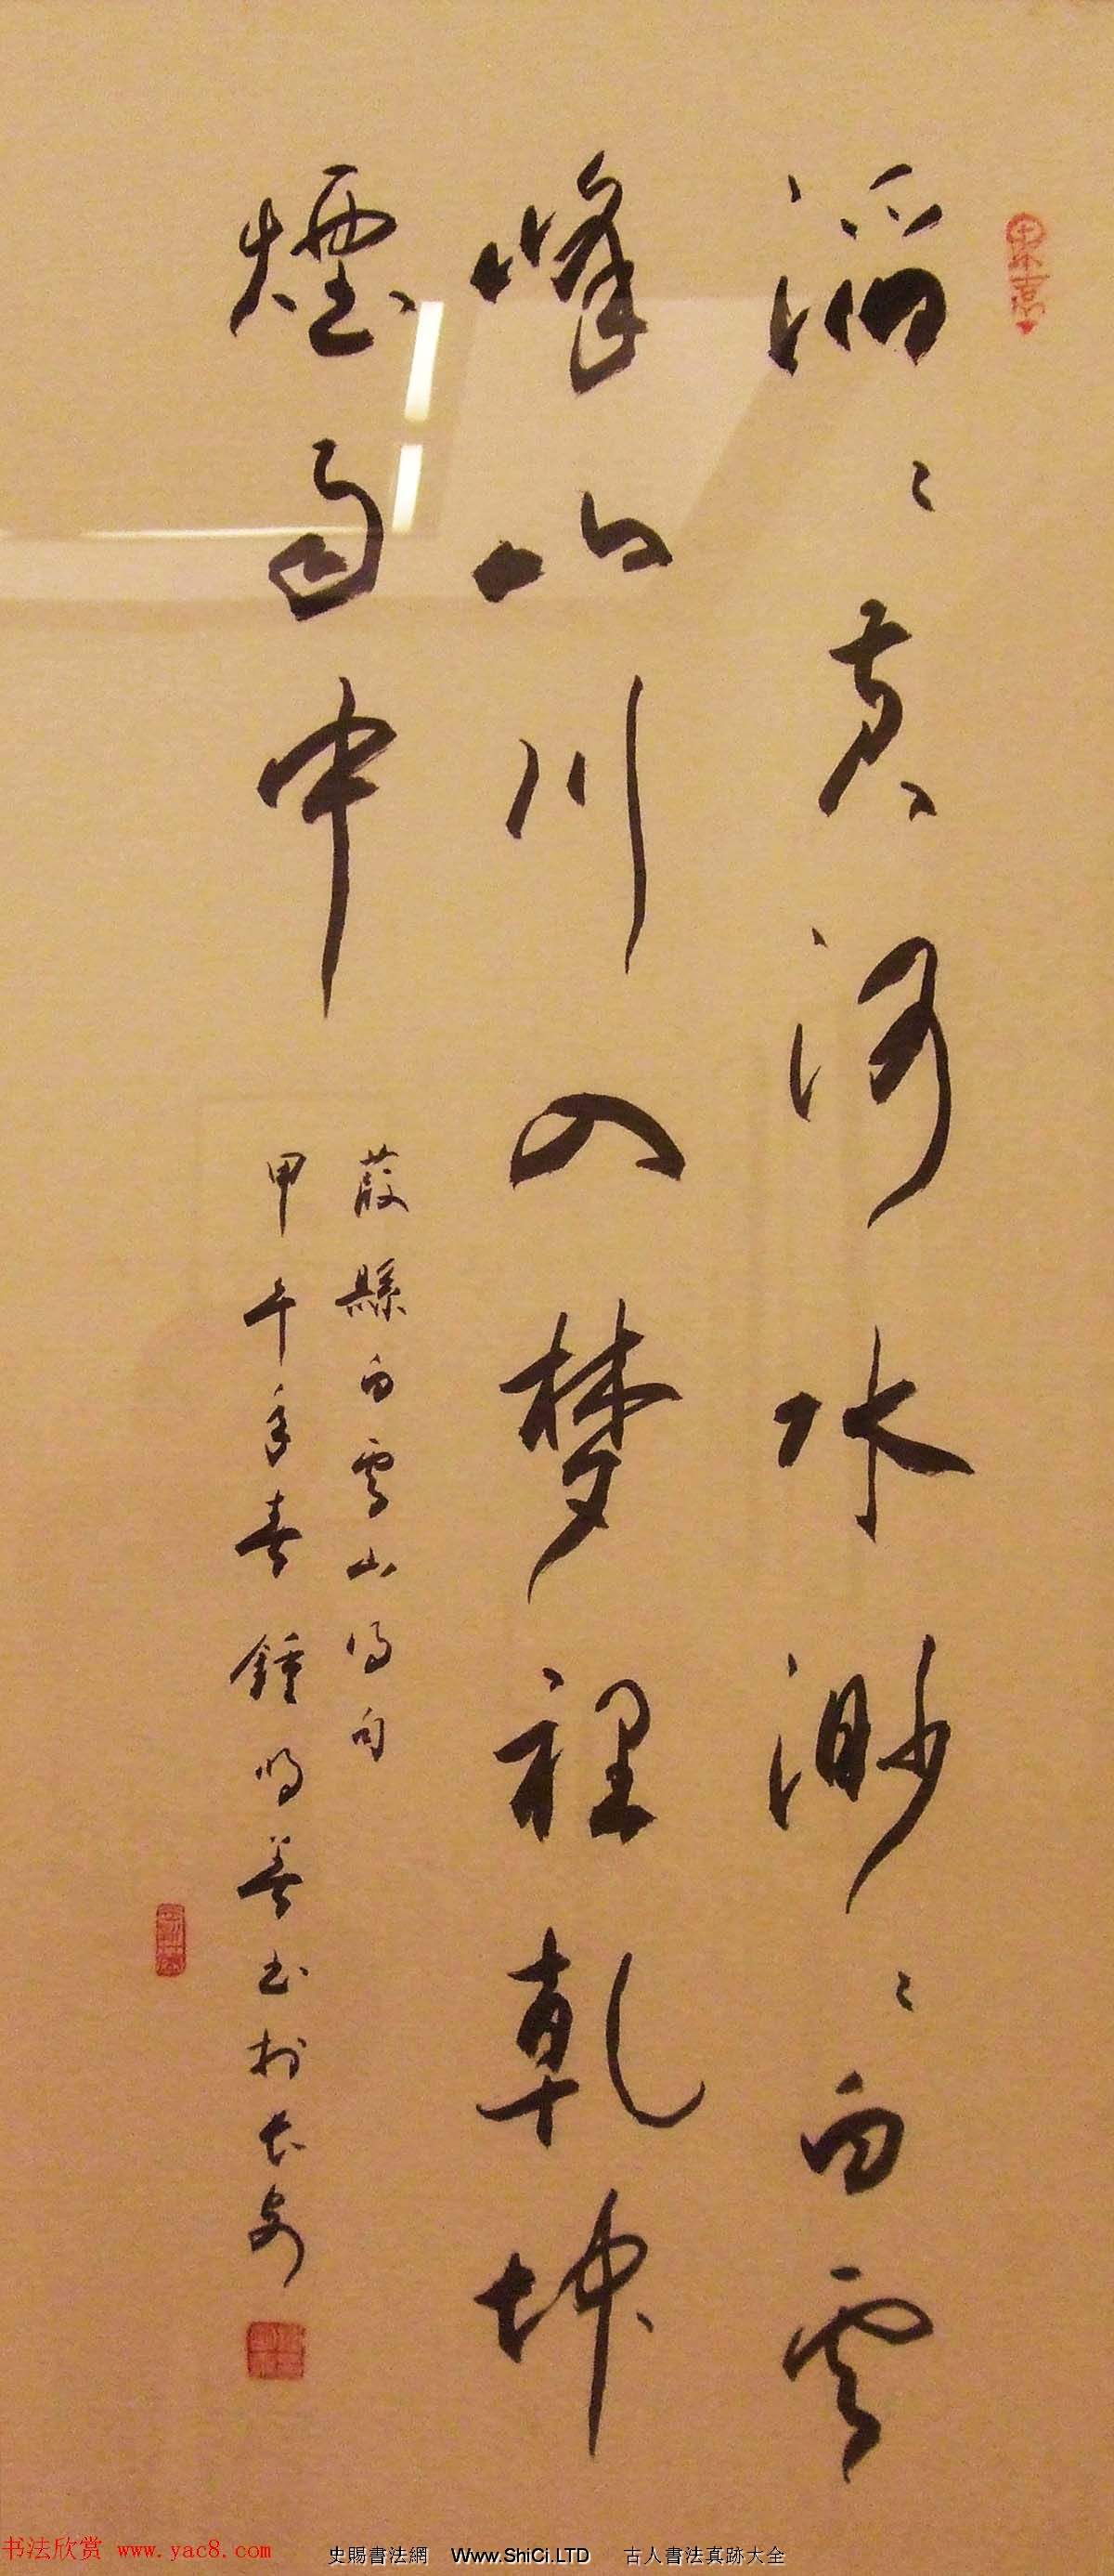 滔々黄河水渺々白雲
峰山川入梦裡乾坤
煙雨中
葭縣白雲山得句
甲午年春鍾明善书於长安
书法欣赏 www.yac8.com
史賜書法網 Www.ShiCi.LTD 古人書法真跡大全